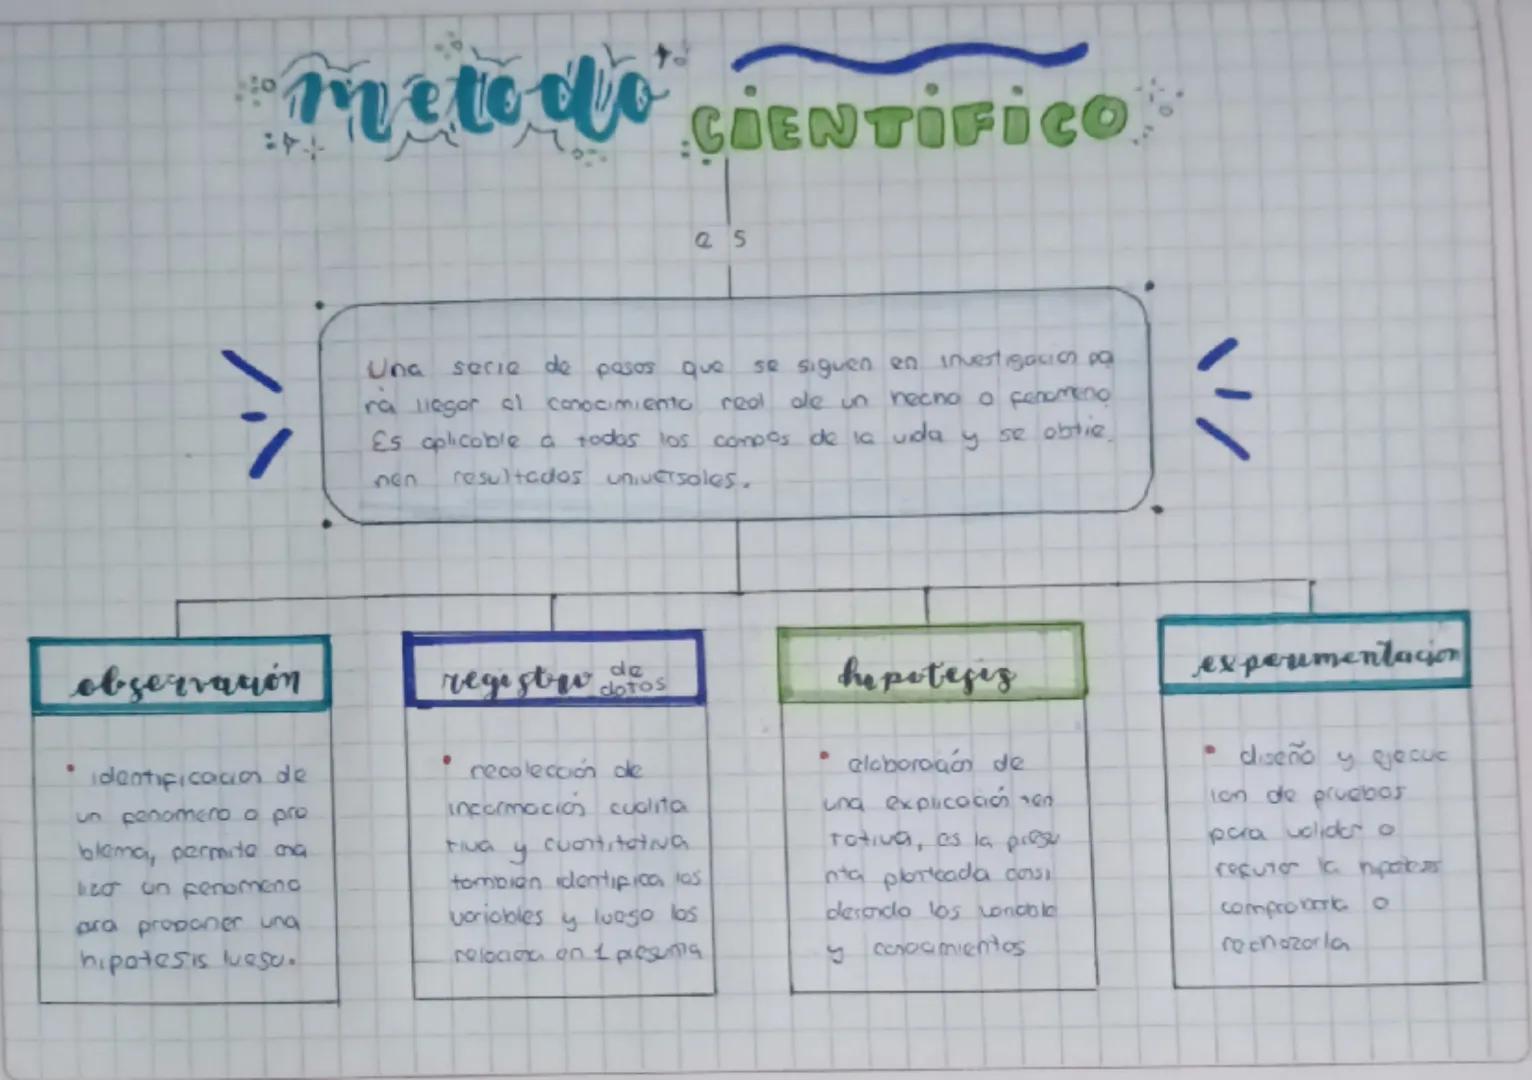 metodo CiENTiFiCO
es
Una serie de pasos que se siguen en investigacion pa
ra llegar al conocimiento real de un hecho o fenomeno
Es aplicable a todos los campos de la vida y se obtie
nen resultados universales.
observación
identificacion de
un fenomeno o pro
blema, permite ana
lizar un fenomeno
para proponer una
hipotesis luego.
registro de
datos
recolección de
información cualita
tiva y cuantitativa
tambien identifica las
variables y luego los
relaciona en 1 pregunta
hipotesis
elaboración de
una explicación ten
tativa, es la pregu
nta planteada consi
derando las variable
y conocimientos
experimentacion
diseño y ejecuc
ion de pruebas
para validar o
refutar la hipotesis
comprobarla o
rechazarla